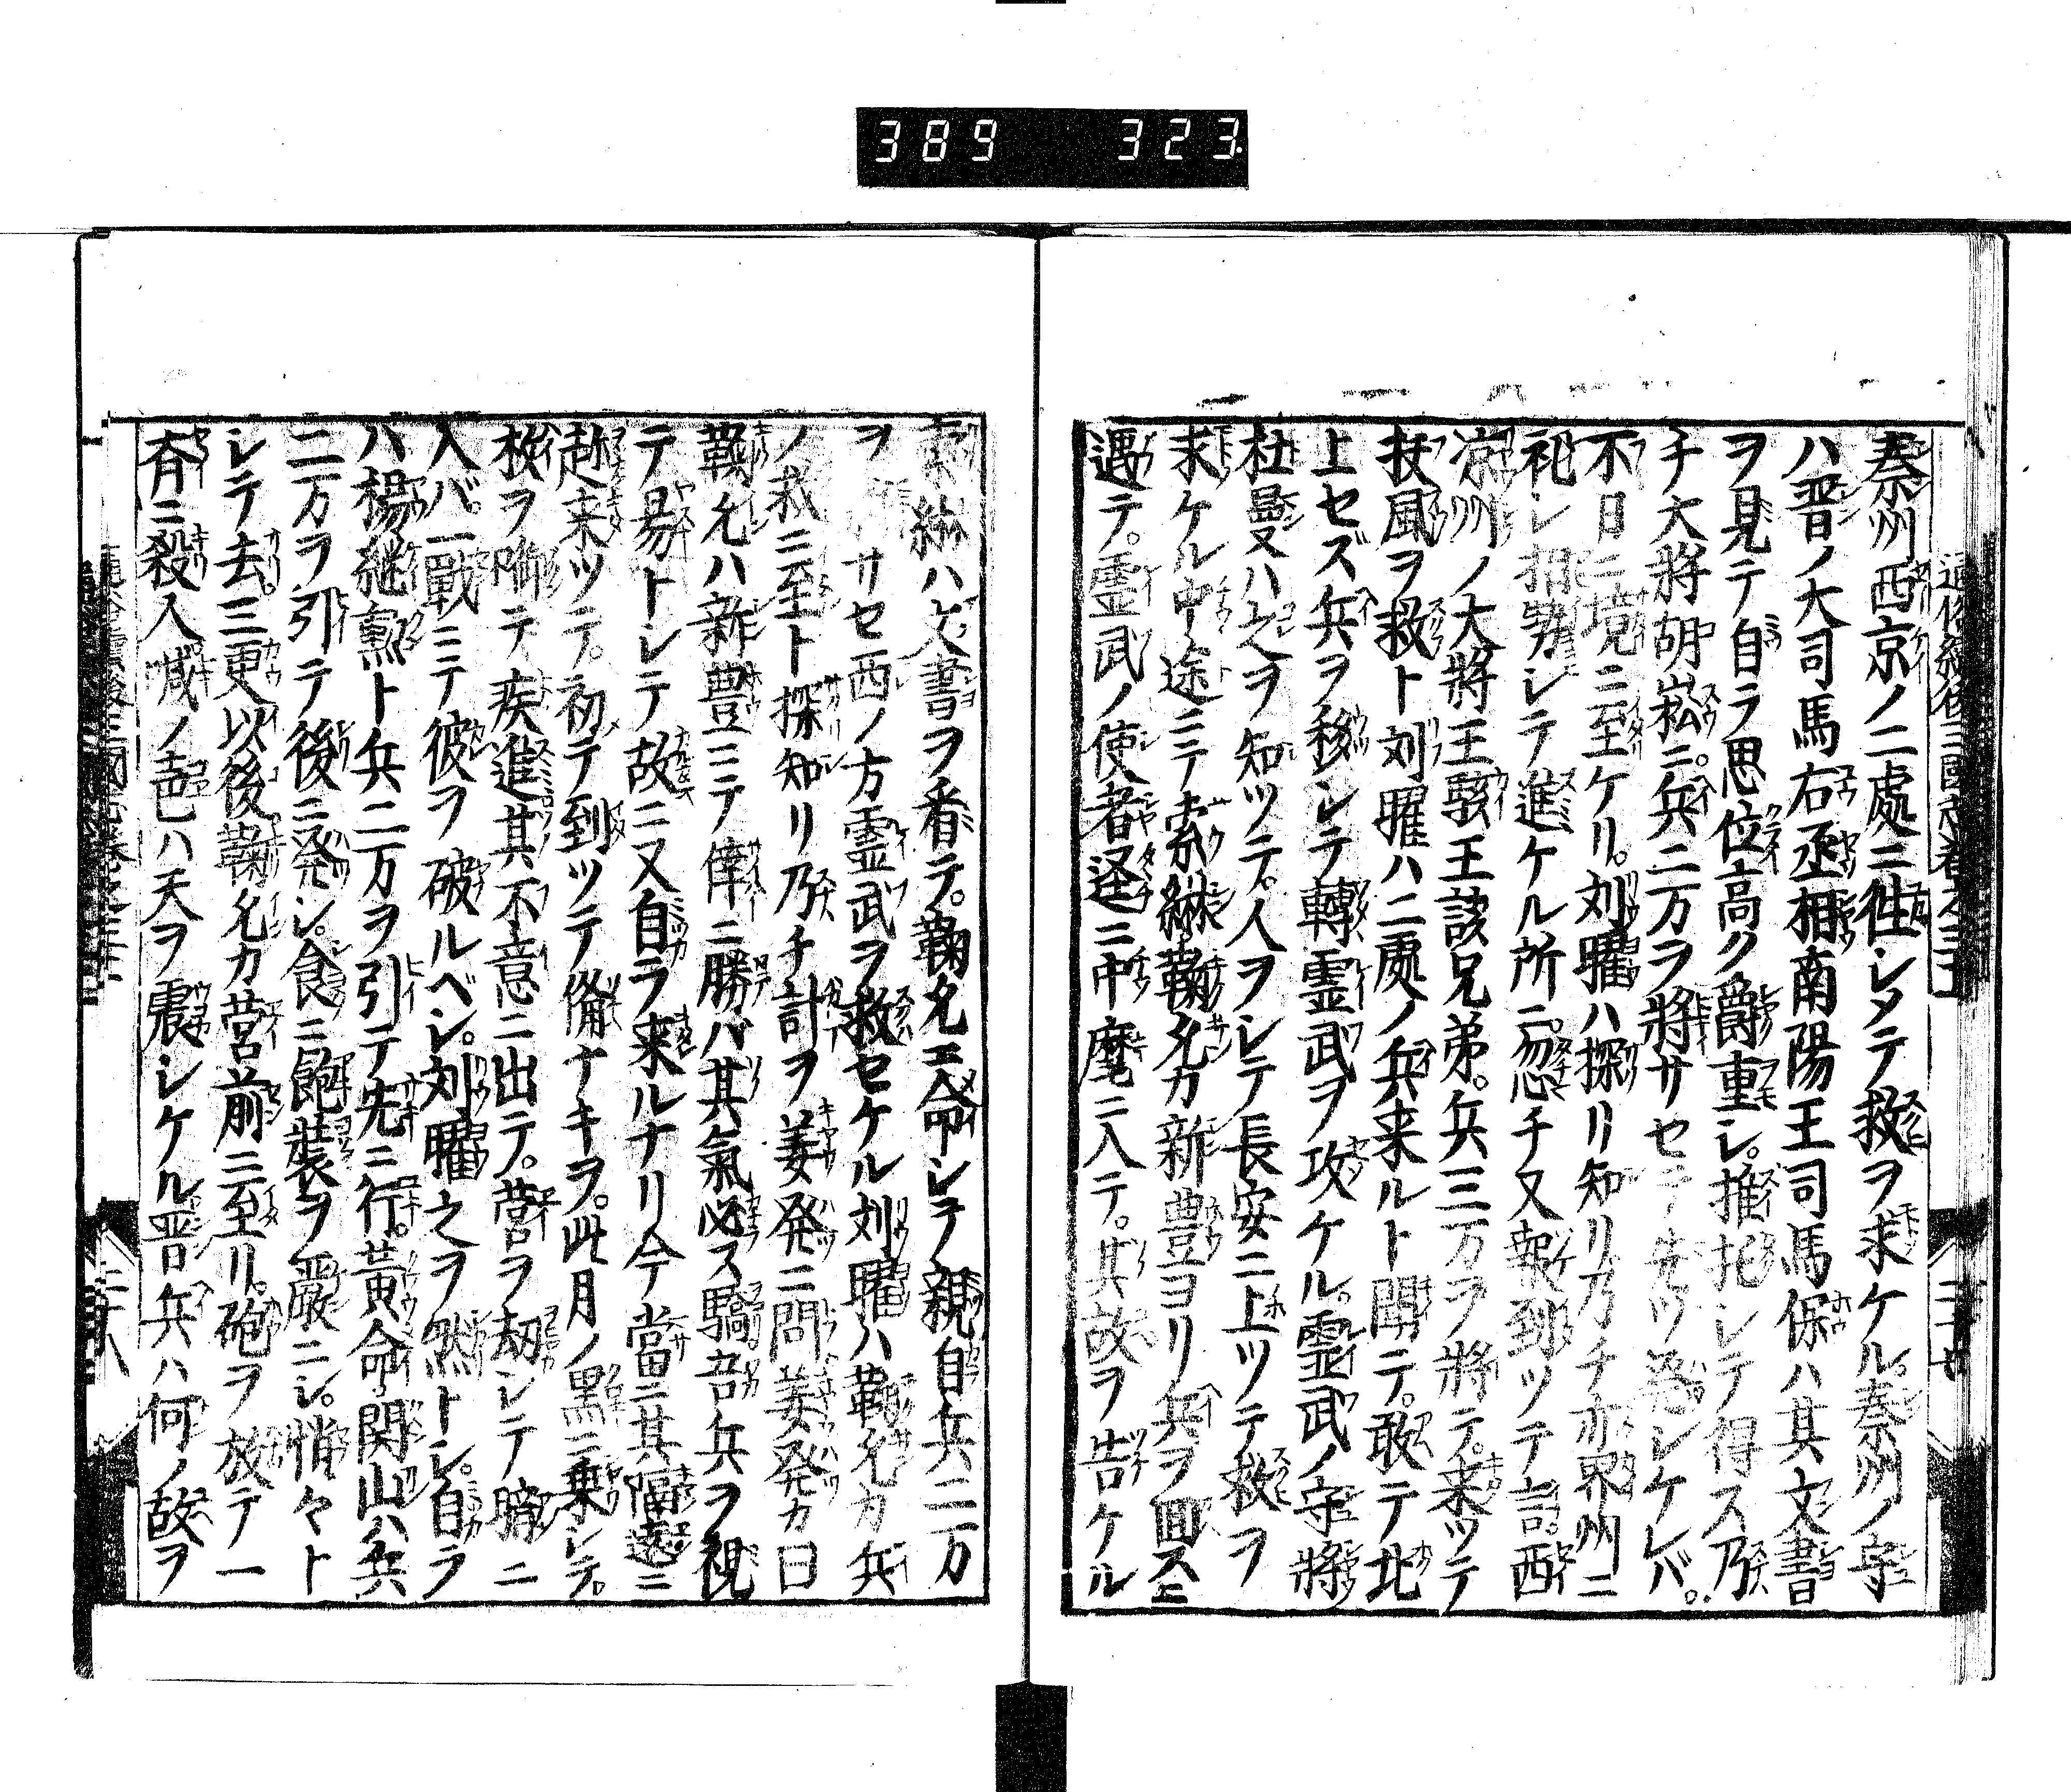 389 323
秦州西京ノ二處ニ往シタテ救ヲ求ケル。秦州ノ守
ハ晋ノ大司馬右丞相南陽王司馬保ハ其文書
ヲ見テ自ラ思位高ク爵重シ。推托シテ得ス乃
チ大將胡崧ニ。兵二万ヲ將サセテ先ツ發シケレバ。
不日ニ境ニ至ケリ。刘曜ハ探リ知リ乃チ亦界州ニ
屯シ相勢シテ進ケル所ニ。忽チ又報到ツテ言。西
凉州ノ大將王騣王該兄弟。兵三万ヲ將テ。来ツテ
扶風ヲ救ト刘曜ハ二處ノ兵来ルト聞ニテ。敢テ北
上セズ兵ヲ移シテ轉霊武ヲ攻ケル。霊武ノ守將
杜曼ハ之ヲ知ツテ。人ヲシテ長安ニ上ツテ救ヲ
求ケル中途ニテ索綝鞠允カ新豊ヨリ兵ヲ回スニ
遇テ。霊武ノ使者逕ニ中麾ニ入テ。其故ヲ告ケル
索綝ハ文書ヲ看テ。鞠允エ命シテ親自兵二万
ヲ サセ西ノ方霊武ヲ救セケル刘曜ハ鞠允カ兵
ノ救ニ至ト探知リ乃チ計ヲ姜発ニ問姜発カ曰
鞠允ハ新豊ニテ倖ニ勝バ其氣必ス驕吾兵ヲ視
テ易トシテ故ニ又自ラ来ルナリ今當ニ其隔遠ニ
趂来ツテ。初テ到ツテ備ナキヲ。此月ノ黒ニ乗シテ。
枚ヲ啣テ疾進其不意ニ出テ。営ヲ刼シテ暗ニ
入バ。一戰ニテ彼ヲ破ルベシ。刘曜之ヲ然トシ。自ラ
ハ楊継勲ト兵二万ヲ引テ先ニ行。黃命関山ハ兵
二万ヲ引テ後ニ発シ。食ニ飽装ヲ嚴ニシ。悄々ト
シテ去。三更以後鞠允カ営前ニ至リ。砲ヲ放テ一
斉ニ殺入喊ノ声ハ天ヲ震シケル晋兵ハ何ノ故ヲ